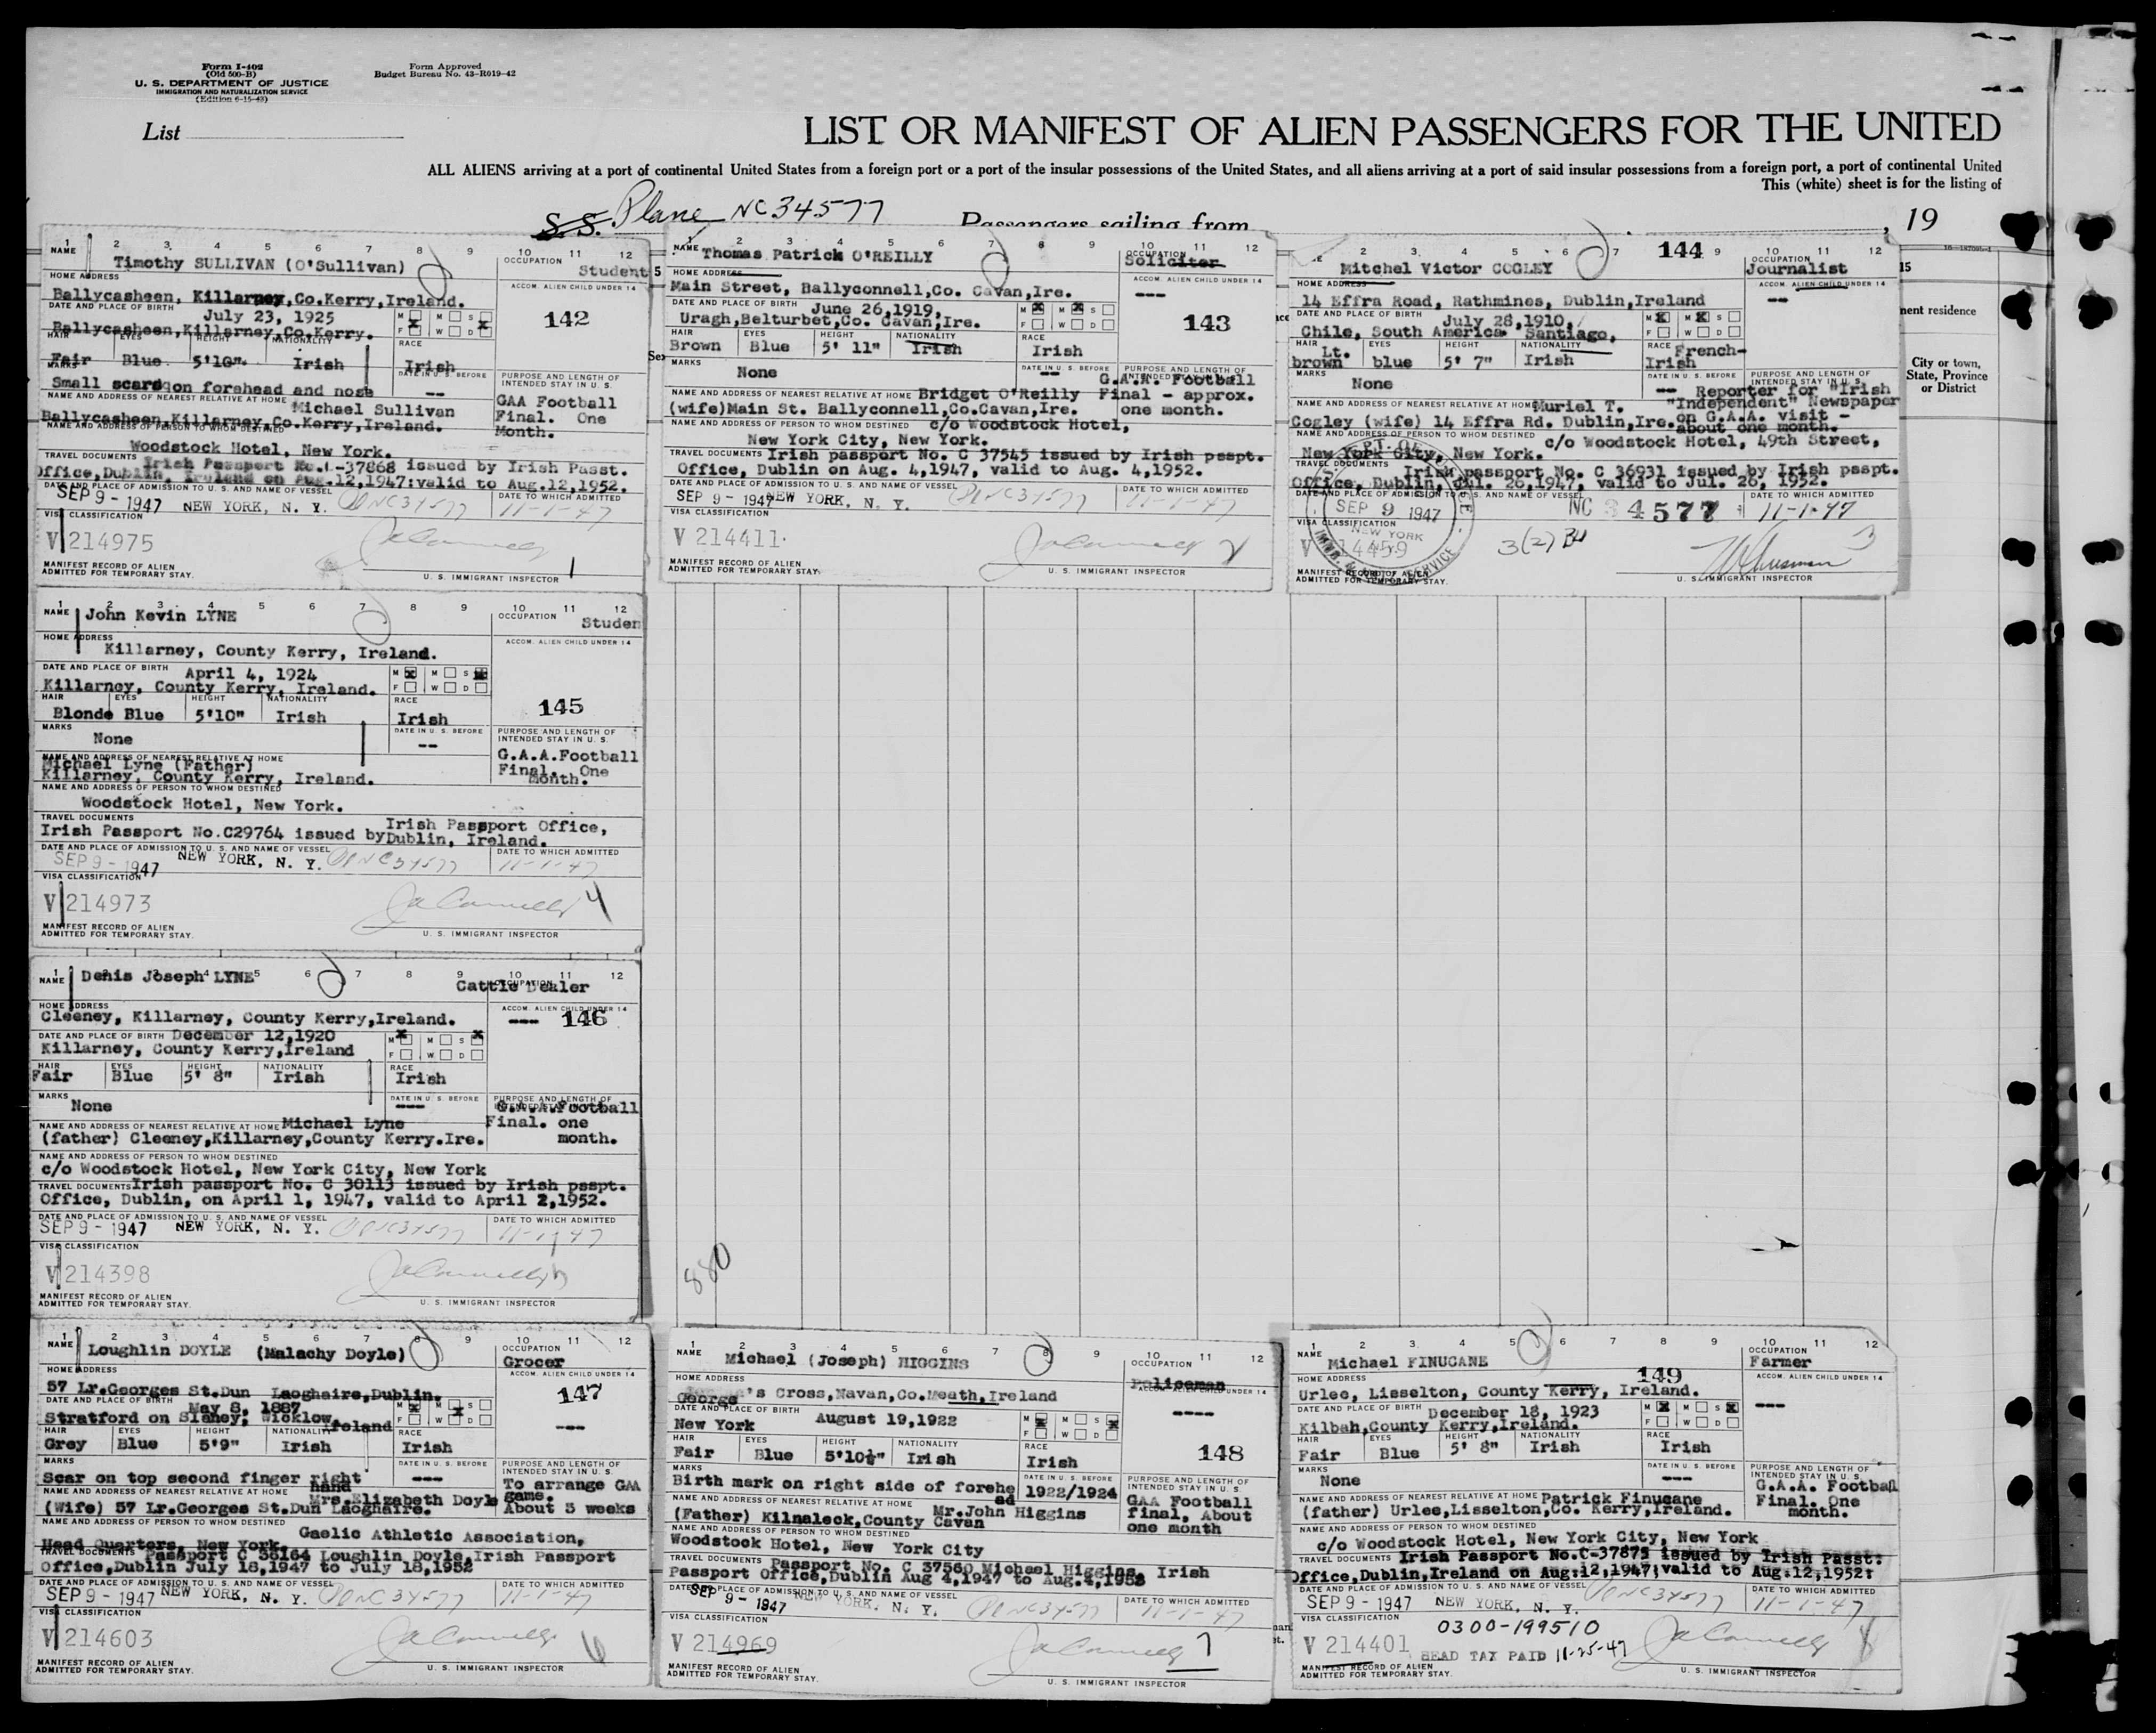 Form I-402
(Old 500-B)
U. S. DEPARTMENT OF JUSTICE
IMMIGRATION AND NATURALIZATION SERVICE
(Edition 6-15-43)
Form Approved
Budget Bureau No. 43-R019-42
List
LIST OR MANIFEST OF ALIEN PASSENGERS FOR THE UNITED
ALL ALIENS arriving at a port of continental United States from a foreign port or a port of the insular possessions of the United States, and all aliens arriving at a port of said insular possessions from a foreign port, a port of continental United
This (white) sheet is for the listing of
S. S. Plane NC34577 Passengers sailing from , 19
1 2 3 4 5 6 7 8 9 10 11 12
NAME Timothy SULLIVAN (O'Sullivan)
OCCUPATION Student
HOME ADDRESS
ACCOM. ALIEN CHILD UNDER 14
Ballycasheen, Killarney, Co.Kerry, Ireland.
DATE AND PLACE OF BIRTH July 23, 1925
Ballycasheen, Killarney, Co. Kerry.
M M S
F W D
142
HAIR EYES HEIGHT NATIONALITY RACE
Fair Blue 5'10" Irish Irish
MARKS
Small scars on forehead and nose
DATE IN U. S. BEFORE --
PURPOSE AND LENGTH OF INTENDED STAY IN U. S.
GAA Football
Final. One
Month.
NAME AND ADDRESS OF NEAREST RELATIVE AT HOME Michael Sullivan
Ballycasheen, Killarney, Co.Kerry, Ireland.
NAME AND ADDRESS OF PERSON TO WHOM DESTINED
Woodstock Hotel, New York.
TRAVEL DOCUMENTS Irish Passport No. C-37868 issued by Irish Passt.
Office, Dublin, Ireland on Aug.12,1947:valid to Aug.12,1952.
DATE AND PLACE OF ADMISSION TO U. S. AND NAME OF VESSEL
SEP 9 - 1947 NEW YORK, N. Y. NC34577
DATE TO WHICH ADMITTED
11-1-47
VISA CLASSIFICATION
V 214975
MANIFEST RECORD OF ALIEN
ADMITTED FOR TEMPORARY STAY.
U. S. IMMIGRANT INSPECTOR 1
1 2 3 4 5 6 7 8 9 10 11 12
NAME Thomas Patrick O'REILLY
OCCUPATION Soliciter
HOME ADDRESS
ACCOM. ALIEN CHILD UNDER 14
---
Main Street, Ballyconnell, Co. Cavan, Ire.
DATE AND PLACE OF BIRTH June 26,1919,
Uragh, Belturbet, Co. Cavan, Ire.
M M S
F W D
143
HAIR EYES HEIGHT NATIONALITY RACE
Brown Blue 5' 11" Irish Irish
MARKS
None
DATE IN U. S. BEFORE --
PURPOSE AND LENGTH OF INTENDED STAY IN U. S.
G.A.A. Football
Final - approx.
one month.
NAME AND ADDRESS OF NEAREST RELATIVE AT HOME Bridget O'Reilly
(wife) Main St. Ballyconnell, Co.Cavan, Ire.
NAME AND ADDRESS OF PERSON TO WHOM DESTINED c/o Woodstock Hotel,
New York City, New York.
TRAVEL DOCUMENTS Irish passport No. C 37545 issued by Irish psspt.
Office, Dublin on Aug. 4,1947, valid to Aug. 4,1952.
DATE AND PLACE OF ADMISSION TO U. S. AND NAME OF VESSEL
SEP 9 - 1947 NEW YORK, N. Y. NC34577
DATE TO WHICH ADMITTED
11-1-47
VISA CLASSIFICATION
V 214411
MANIFEST RECORD OF ALIEN
ADMITTED FOR TEMPORARY STAY.
U. S. IMMIGRANT INSPECTOR 2
2 3 4 5 6 7 144 9 10 11 12
Mitchel Victor COGLEY
OCCUPATION Journalist
HOME ADDRESS
ACCOM. ALIEN CHILD UNDER 14
--
14 Effra Road, Rathmines, Dublin, Ireland
DATE AND PLACE OF BIRTH July 28,1910,
Chile, South America. Santiago,
M M S
F W D
HAIR EYES HEIGHT NATIONALITY RACE
Lt. brown blue 5' 7" Irish French-Irish
MARKS
None
DATE IN U. S. BEFORE --
PURPOSE AND LENGTH OF INTENDED STAY IN U. S.
Reporter for "Irish
"Independent" Newspaper
on G.A.A. visit -
about one month.
NAME AND ADDRESS OF NEAREST RELATIVE AT HOME Muriel T.
Cogley (wife) 14 Effra Rd. Dublin, Ire.
NAME AND ADDRESS OF PERSON TO WHOM DESTINED c/o Woodstock Hotel, 49th Street,
New York City, New York.
TRAVEL DOCUMENTS Irish passport No. C 36931 issued by Irish psspt.
Office, Dublin, Jul. 26,1947, valid to Jul. 26, 1952.
DATE AND PLACE OF ADMISSION TO U. S. AND NAME OF VESSEL
SEP 9 1947
NEW YORK
NC 34577
DATE TO WHICH ADMITTED
11-1-47
VISA CLASSIFICATION
V 14459
3(2)
MANIFEST RECORD OF ALIEN
ADMITTED FOR TEMPORARY STAY.
U. S. IMMIGRANT INSPECTOR 3
15
nent residence
City or town,
State, Province
or District
1 2 3 4 5 6 7 8 9 10 11 12
NAME John Kevin LYNE
OCCUPATION Studen
HOME ADDRESS
ACCOM. ALIEN CHILD UNDER 14
Killarney, County Kerry, Ireland.
DATE AND PLACE OF BIRTH April 4, 1924
Killarney, County Kerry, Ireland.
M M S
F W D
145
HAIR EYES HEIGHT NATIONALITY RACE
Blonde Blue 5'10" Irish Irish
MARKS
None
DATE IN U. S. BEFORE --
PURPOSE AND LENGTH OF INTENDED STAY IN U. S.
G.A.A.Football
Final. One
Month.
NAME AND ADDRESS OF NEAREST RELATIVE AT HOME
Michael Lyne (Father)
Killarney, County Kerry, Ireland.
NAME AND ADDRESS OF PERSON TO WHOM DESTINED
Woodstock Hotel, New York.
TRAVEL DOCUMENTS
Irish Passport No.C29764 issued by Irish Passport Office,
Dublin, Ireland.
DATE AND PLACE OF ADMISSION TO U. S. AND NAME OF VESSEL
SEP 9 - 1947 NEW YORK, N. Y. NC34577
DATE TO WHICH ADMITTED
11-1-47
VISA CLASSIFICATION
V 214973
MANIFEST RECORD OF ALIEN
ADMITTED FOR TEMPORARY STAY.
U. S. IMMIGRANT INSPECTOR 4
1 2 3 4 5 6 7 8 9 10 11 12
NAME Denis Joseph LYNE
OCCUPATION Cattle Dealer
HOME ADDRESS
ACCOM. ALIEN CHILD UNDER 14
--- 146
Cleeney, Killarney, County Kerry, Ireland.
DATE AND PLACE OF BIRTH December 12,1920
Killarney, County Kerry, Ireland
M M S
F W D
HAIR EYES HEIGHT NATIONALITY RACE
Fair Blue 5' 8" Irish Irish
MARKS
None
DATE IN U. S. BEFORE ---
PURPOSE AND LENGTH OF INTENDED STAY IN U. S.
G.A.A.Football
Final. one
month.
NAME AND ADDRESS OF NEAREST RELATIVE AT HOME Michael Lyne
(father) Cleeney, Killarney, County Kerry. Ire.
NAME AND ADDRESS OF PERSON TO WHOM DESTINED
c/o Woodstock Hotel, New York City, New York
TRAVEL DOCUMENTS Irish passport No. C 30113 issued by Irish psspt.
Office, Dublin, on April 1, 1947, valid to April 2,1952.
DATE AND PLACE OF ADMISSION TO U. S. AND NAME OF VESSEL
SEP 9 - 1947 NEW YORK, N. Y. NC34577
DATE TO WHICH ADMITTED
11-1-47
VISA CLASSIFICATION
V 214398
MANIFEST RECORD OF ALIEN
ADMITTED FOR TEMPORARY STAY.
U. S. IMMIGRANT INSPECTOR
880
1 2 3 4 5 6 7 8 9 10 11 12
NAME Loughlin DOYLE (Malachy Doyle)
OCCUPATION Grocer
HOME ADDRESS
ACCOM. ALIEN CHILD UNDER 14
57 Lr.Georges St.Dun Laoghaire, Dublin.
147
---
DATE AND PLACE OF BIRTH May 8, 1887
Stratford on Slaney, Wicklow, Ireland
M M S
F W D
HAIR EYES HEIGHT NATIONALITY RACE
Grey Blue 5'9" Irish Irish
MARKS
Scar on top second finger right hand
DATE IN U. S. BEFORE ---
PURPOSE AND LENGTH OF INTENDED STAY IN U. S.
To arrange GAA
game.
About 3 weeks
NAME AND ADDRESS OF NEAREST RELATIVE AT HOME Mrs.Elizabeth Doyle
(Wife) 57 Lr.Georges St.Dun Laoghaire.
NAME AND ADDRESS OF PERSON TO WHOM DESTINED Gaelic Athletic Association,
Head Quarters, New York.
TRAVEL DOCUMENTS Passport C 36164 Loughlin Doyle, Irish Passport
Office, Dublin July 18,1947 to July 18,1952
DATE AND PLACE OF ADMISSION TO U. S. AND NAME OF VESSEL
SEP 9 - 1947 NEW YORK, N. Y. NC34577
DATE TO WHICH ADMITTED
11-1-47
VISA CLASSIFICATION
V 214603
MANIFEST RECORD OF ALIEN
ADMITTED FOR TEMPORARY STAY.
U. S. IMMIGRANT INSPECTOR 6
1 2 3 4 5 6 7 8 9 10 11 12
NAME Michael (Joseph) HIGGINS
OCCUPATION Policeman
HOME ADDRESS
ACCOM. ALIEN CHILD UNDER 14
----
George's Cross, Navan, Co.Meath, Ireland
DATE AND PLACE OF BIRTH August 19,1922
New York
M M S
F W D
148
HAIR EYES HEIGHT NATIONALITY RACE
Fair Blue 5'10½" Irish Irish
MARKS
Birth mark on right side of forehead
DATE IN U. S. BEFORE 1922/1924
PURPOSE AND LENGTH OF INTENDED STAY IN U. S.
GAA Football
final, About
one month
NAME AND ADDRESS OF NEAREST RELATIVE AT HOME Mr.John Higgins
(Father) Kilnaleck, County Cavan
NAME AND ADDRESS OF PERSON TO WHOM DESTINED
Woodstock Hotel, New York City
TRAVEL DOCUMENTS Passport No. C 37560 Michael Higgins, Irish
Passport Office, Dublin Aug 4,1947 to Aug.4,1952
DATE AND PLACE OF ADMISSION TO U. S. AND NAME OF VESSEL
SEP 9 - 1947 NEW YORK, N. Y. NC34577
DATE TO WHICH ADMITTED
11-1-47
VISA CLASSIFICATION
V 214969
MANIFEST RECORD OF ALIEN
ADMITTED FOR TEMPORARY STAY.
U. S. IMMIGRANT INSPECTOR 7
1 2 3 4 5 6 7 8 9 10 11 12
NAME Michael FINUCANE
149
OCCUPATION Farmer
HOME ADDRESS
ACCOM. ALIEN CHILD UNDER 14
---
Urlee, Lisselton, County Kerry, Ireland.
DATE AND PLACE OF BIRTH December 18, 1923
Kilbah, County Kerry, Ireland.
M M S
F W D
HAIR EYES HEIGHT NATIONALITY RACE
Fair Blue 5' 8" Irish Irish
MARKS
None
DATE IN U. S. BEFORE ---
PURPOSE AND LENGTH OF INTENDED STAY IN U. S.
G.A.A. Football
Final. One
month.
NAME AND ADDRESS OF NEAREST RELATIVE AT HOME Patrick Finucane
(father) Urlee, Lisselton, Co. Kerry, Ireland.
NAME AND ADDRESS OF PERSON TO WHOM DESTINED
c/o Woodstock Hotel, New York City, New York
TRAVEL DOCUMENTS Irish Passport No.C-37875 issued by Irish Passt:
Office, Dublin, Ireland on Aug:12,1947;valid to Aug:12,1952:
DATE AND PLACE OF ADMISSION TO U. S. AND NAME OF VESSEL
SEP 9 - 1947 NEW YORK, N. Y. NC34577
DATE TO WHICH ADMITTED
11-1-47
VISA CLASSIFICATION
0300-199510
V 214401
HEAD TAX PAID 11-25-47
MANIFEST RECORD OF ALIEN
ADMITTED FOR TEMPORARY STAY.
U. S. IMMIGRANT INSPECTOR 8